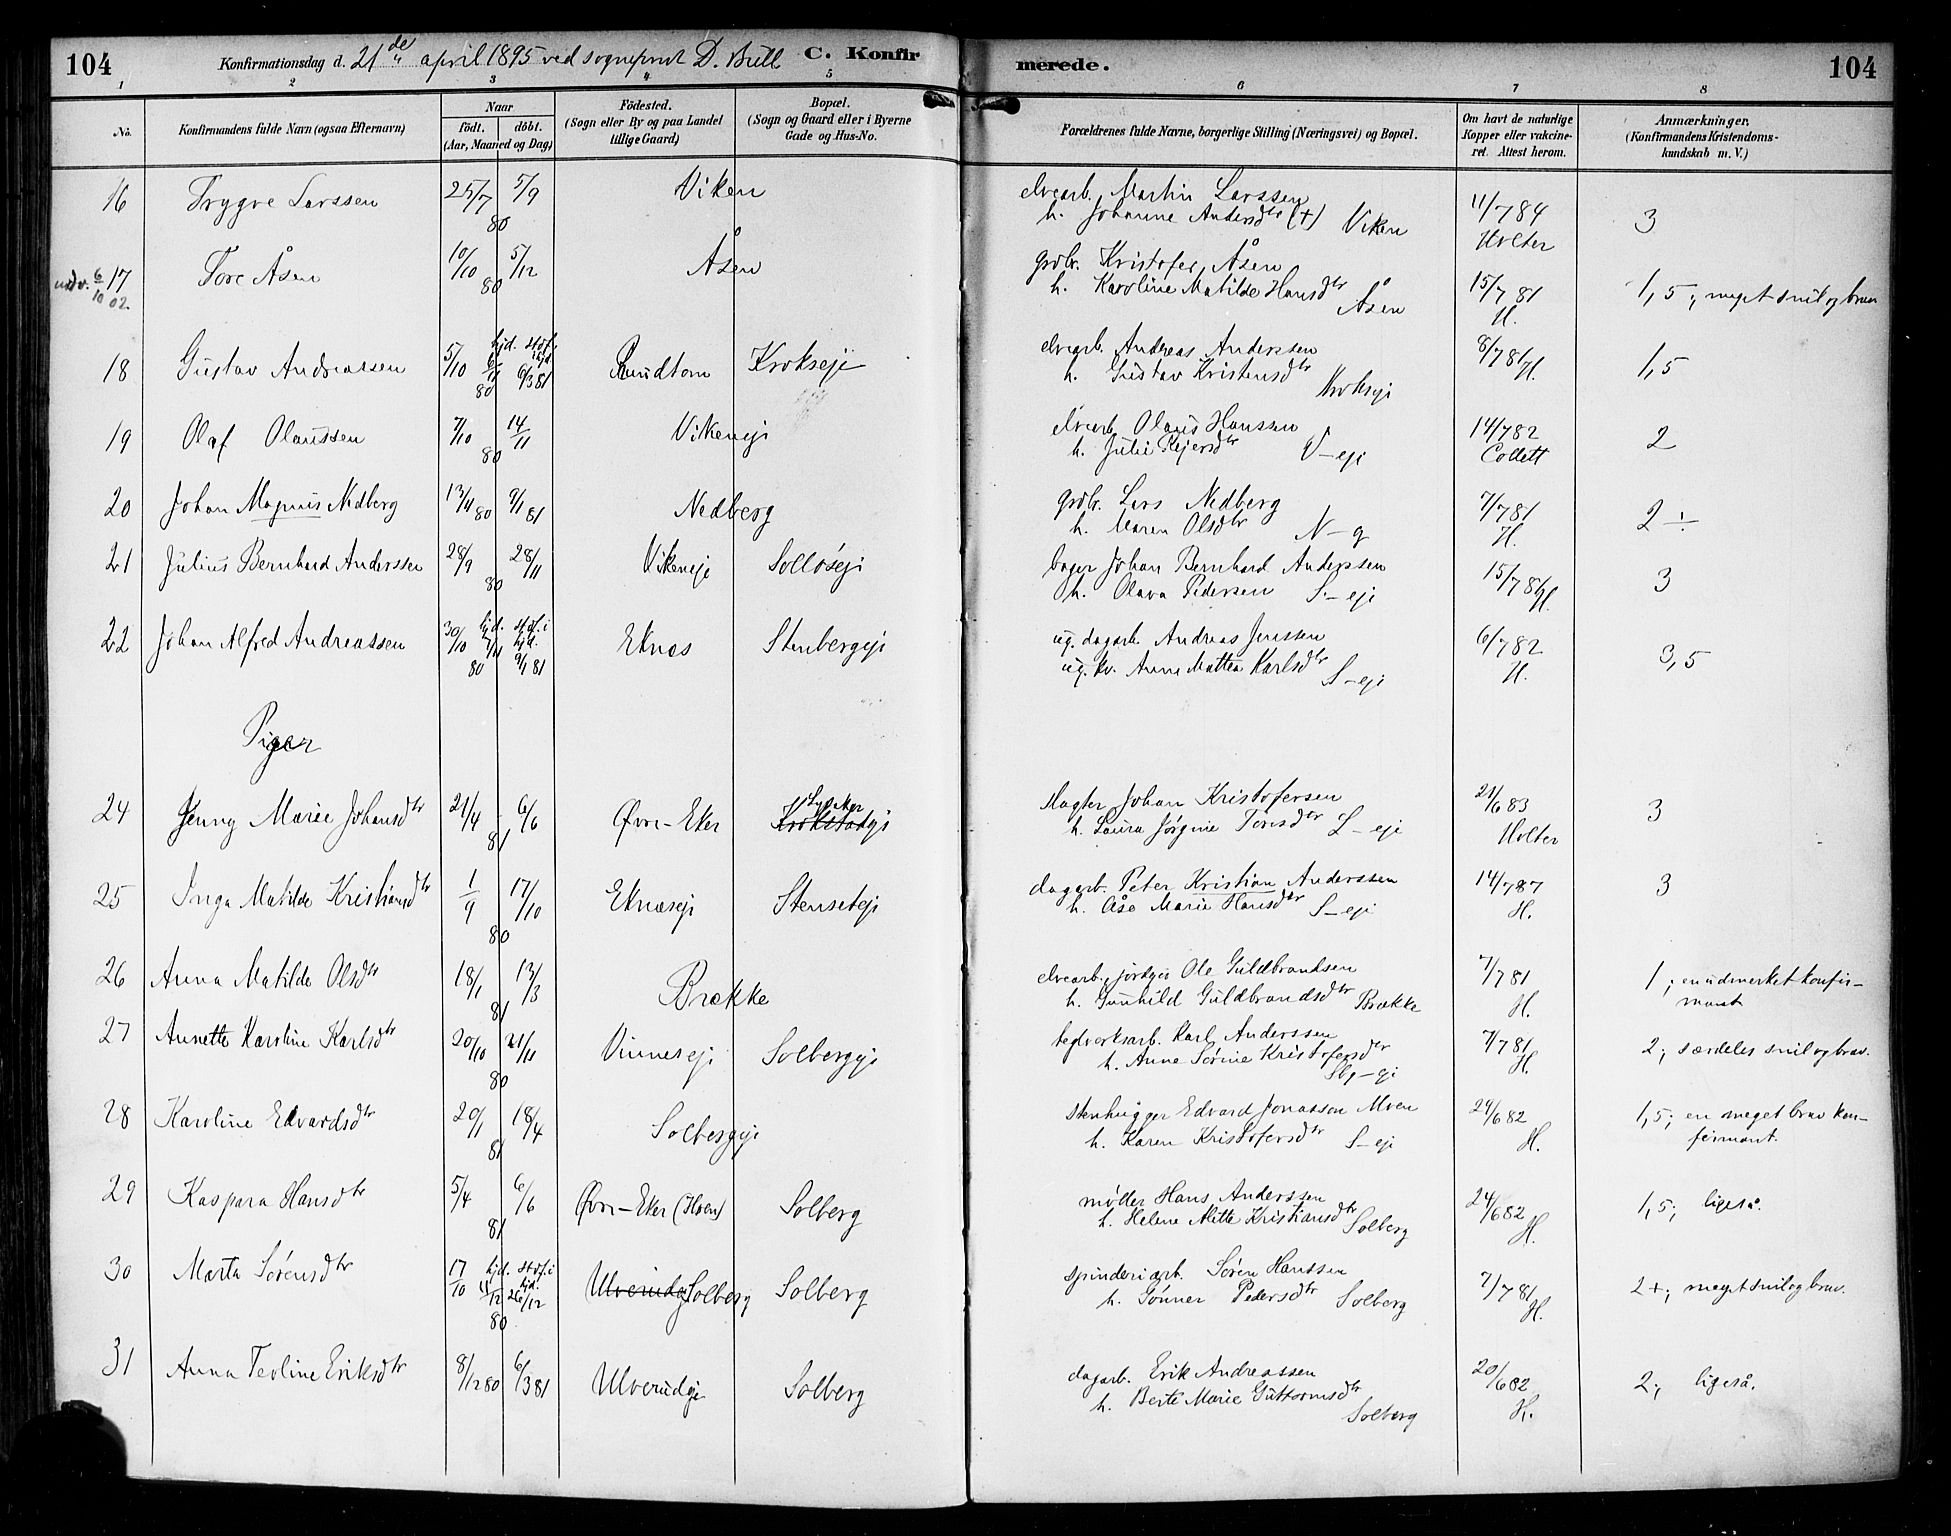 104 Konfirmationsdag d. 21de april 1895 ved sogneprest D. Bull C. Konfirmerede. 104
1 2 3 4 5 6 7 8
No. Konfirmandens fulde Navn (ogsaa Efternavn) Naar födt. döbt. (Aar, Maaned og Dag) Födested. (Sogn eller By og paa Landet tillige Gaard) Bopæl. (Sogn og Gaard eller i Byerne Gade og Hus-No. Forældrenes fulde Navne, borgerlige Stilling (Næringsvei) og Bopæl. Om havt de naturlige Kopper eller vakcineret. Attest herom. Anmærkninger. (Konfirmandens Kristendomskundskab m. V.)
16 Trygve Larssen 25/7 80 5/9 Viken elvearb. Martin Larssen
h. Johanne Andersdtr (+) Viken 11/7 84 Holter 3
udv. 6/10 02. 17 Tore Åsen 10/10 80 5/12 Åsen grdbr. Kristofer Åsen
h. Karoline Matilde Hansdtr Åsen 15/7 81 H. 1,5; meget snil og brav
18 Gustav Andreassen 5/10 80 hjd. 6/11 stdf. i hjd. 6/3 81 Rundtom Krokseje elvearb. Andreas Anderssen
h. Gustav Kristensdtr Krokseje 8/7 81 H. 1,5
19 Olaf Olaussen 7/10 80 14/11 Vikeneje elvearb. Olaus Hanssen
h. Julie Rejersdtr V-eje 14/7 82 Collett 2
20 Johan Magnus Nedberg 13/4 80 9/1 81 Nedberg grdbr. Lars Nedberg
h. Maren Olsdtr N-g 7/7 81 H. 2 ÷
21 Julius Bernhard Anderssen 28/9 80 28/11 Vikeneje Solloseje bager Johan Bernhard Anderssen
h. Olava Pedersen S-eje 15/7 86 H. 3
22 Johan Alfred Andreassen 30/10 80 hjd. 7/11 stdf. i hjd. 9/1 81 Eknes Stenbergeje ug. dagarb. Andreas Jenssen
ug. kv. Anne Mattea Karlsdtr S-eje 6/7 82 H. 3,5
Piger
24 Jenny Marie Johansdtr 21/4 81 6/6 Øvre-Eker Krokstadeje slagter Johan Kristofersen
h. Laura Jørgine Tønsdtr L-eje 21/6 83 Holter 3
25 Inga Matilde Kristiansdtr 1/9 80 17/10 Eknæseje Stenseteje dagarb. Peter Kristian Anderssen
h. Åse Marie Hansdtr S-eje 14/7 87 H. 3
26 Anna Matilde Olsdtr 18/1 81 13/3 Brække elvearb., jordejer Ole Guldbrandsen
h. Gunhild Guldbrandsdtr Brække 7/7 81 H. 1; en udmerket konfirmant
27 Annette Karoline Karlsdtr 20/10 80 21/11 Vinneseje Solbergeje teglverksarb. Karl Anderssen
h. Anne Sørine Kristofersdtr Sbg-eje 7/7 81 H. 2; særdeles snil og brav.
28 Karoline Edvardsdtr 20/1 81 18/4 Solbergeje stenhugger Edvard Jonasson Moen
h. Karen Kristofersdtr S-eje 24/6 82 H. 1,5; en meget brav konfirmant.
29 Kaspara Hansdtr 5/4 81 6/6 Øvre-Eker (Hoen) Solberg møller Hans Anderssen
h. Helene Mitte Kristiansdtr Solberg 24/6 82 H. 1,5; ligeså.
30 Marta Sørensdtr 17/10 80 hjd. 11/12 stdf. i hjd. 26/12 Ulverudeje Solberg Solberg spinderiarb. Søren Hanssen
h. Gunner Pedersdtr Solberg 7/7 81 H. 2+; meget snil og brav.
31 Anna Teoline Eriksdtr 8/12 80 6/3 81 Ulverudeje Solberg dagarb. Erik Andreassen
h. Berte Marie Guttormsdtr Solberg 20/6 82 H. 2; ligeså.